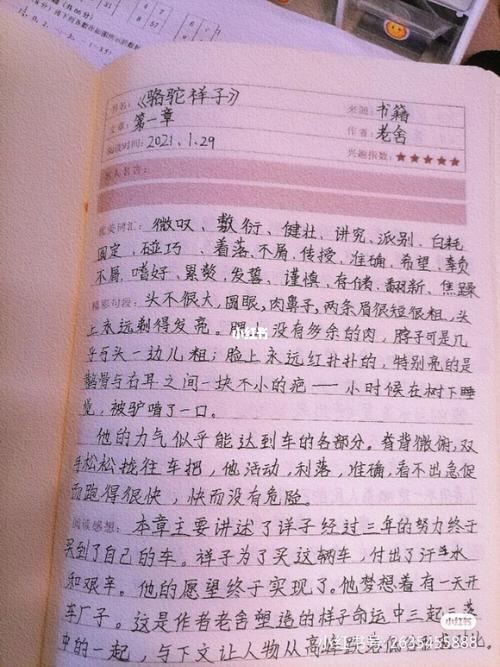 书名:《骆驼祥子》
来源:书籍
文章:第一章
作者:老舍
阅读时间:2021.1.29
兴趣指数:★★★★★
名人名言:
优美词汇:微叹、敷衍、健壮、讲究、派别、白耗
固定、碰巧、着落、不屑、传授、准确、希望、辜负
不屑、嗜好、累赘、发誓、谨慎、存储、翻新、焦躁
精彩句段:头不很大,圆眼,肉鼻子,两条眉很短很粗,头
上永远剃得发亮。腮上没有多余的肉,脖子可是几
乎石头一边儿粗;脸上永远红扑扑的,特别亮的是
颧骨与右耳之间一块不小的疤——小时候在树下睡
觉,被驴啃了一口。
他的力气似乎能达到车的各部分。脊背微俯,双
手松松拢住车把,他活动,利落,准确,看不出急促
而跑得很快,快而没有危险。
阅读感想:本章主要讲述了祥子经过三年的努力终于
买到了自己的车。祥子为了买这辆车,付出了汗水
和艰辛。他的愿望终于实现了。他梦想着有一天开
车厂子。这是作者老舍塑造的祥子命运中三起三落
中的一起,与下文让人物从高峰跌落低谷
小红书
小红书
小红书号: